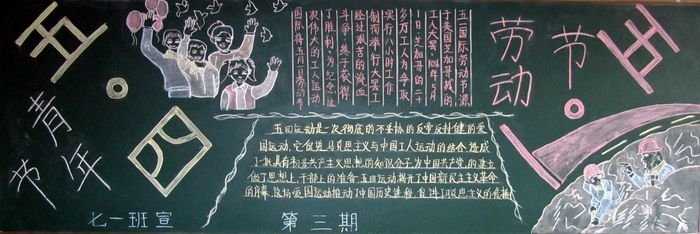 五·四
青年节
五一国际劳动节源
于美国芝加哥城的
工人大罢工
1日芝加哥的二十
多万工人为争取
实行八小时工作
制而举行大罢工
经过艰苦的流血
斗争终于获得
了胜利为纪念这
次伟大的工人运动
劳动节
五·一
五四运动是一次彻底的不妥协的反帝反封建的爱
国运动，它促进马克思主义与中国工人运动的结合，造成
了一批具有初步共产主义思想的知识分子，为中国共产党的建立
做了思想上、干部上的准备。五四运动揭开了中国新民主主义革命
的序幕，这场爱国运动推动了中国历史进程，促进了马克思主义的传播
七一班宣
第三期